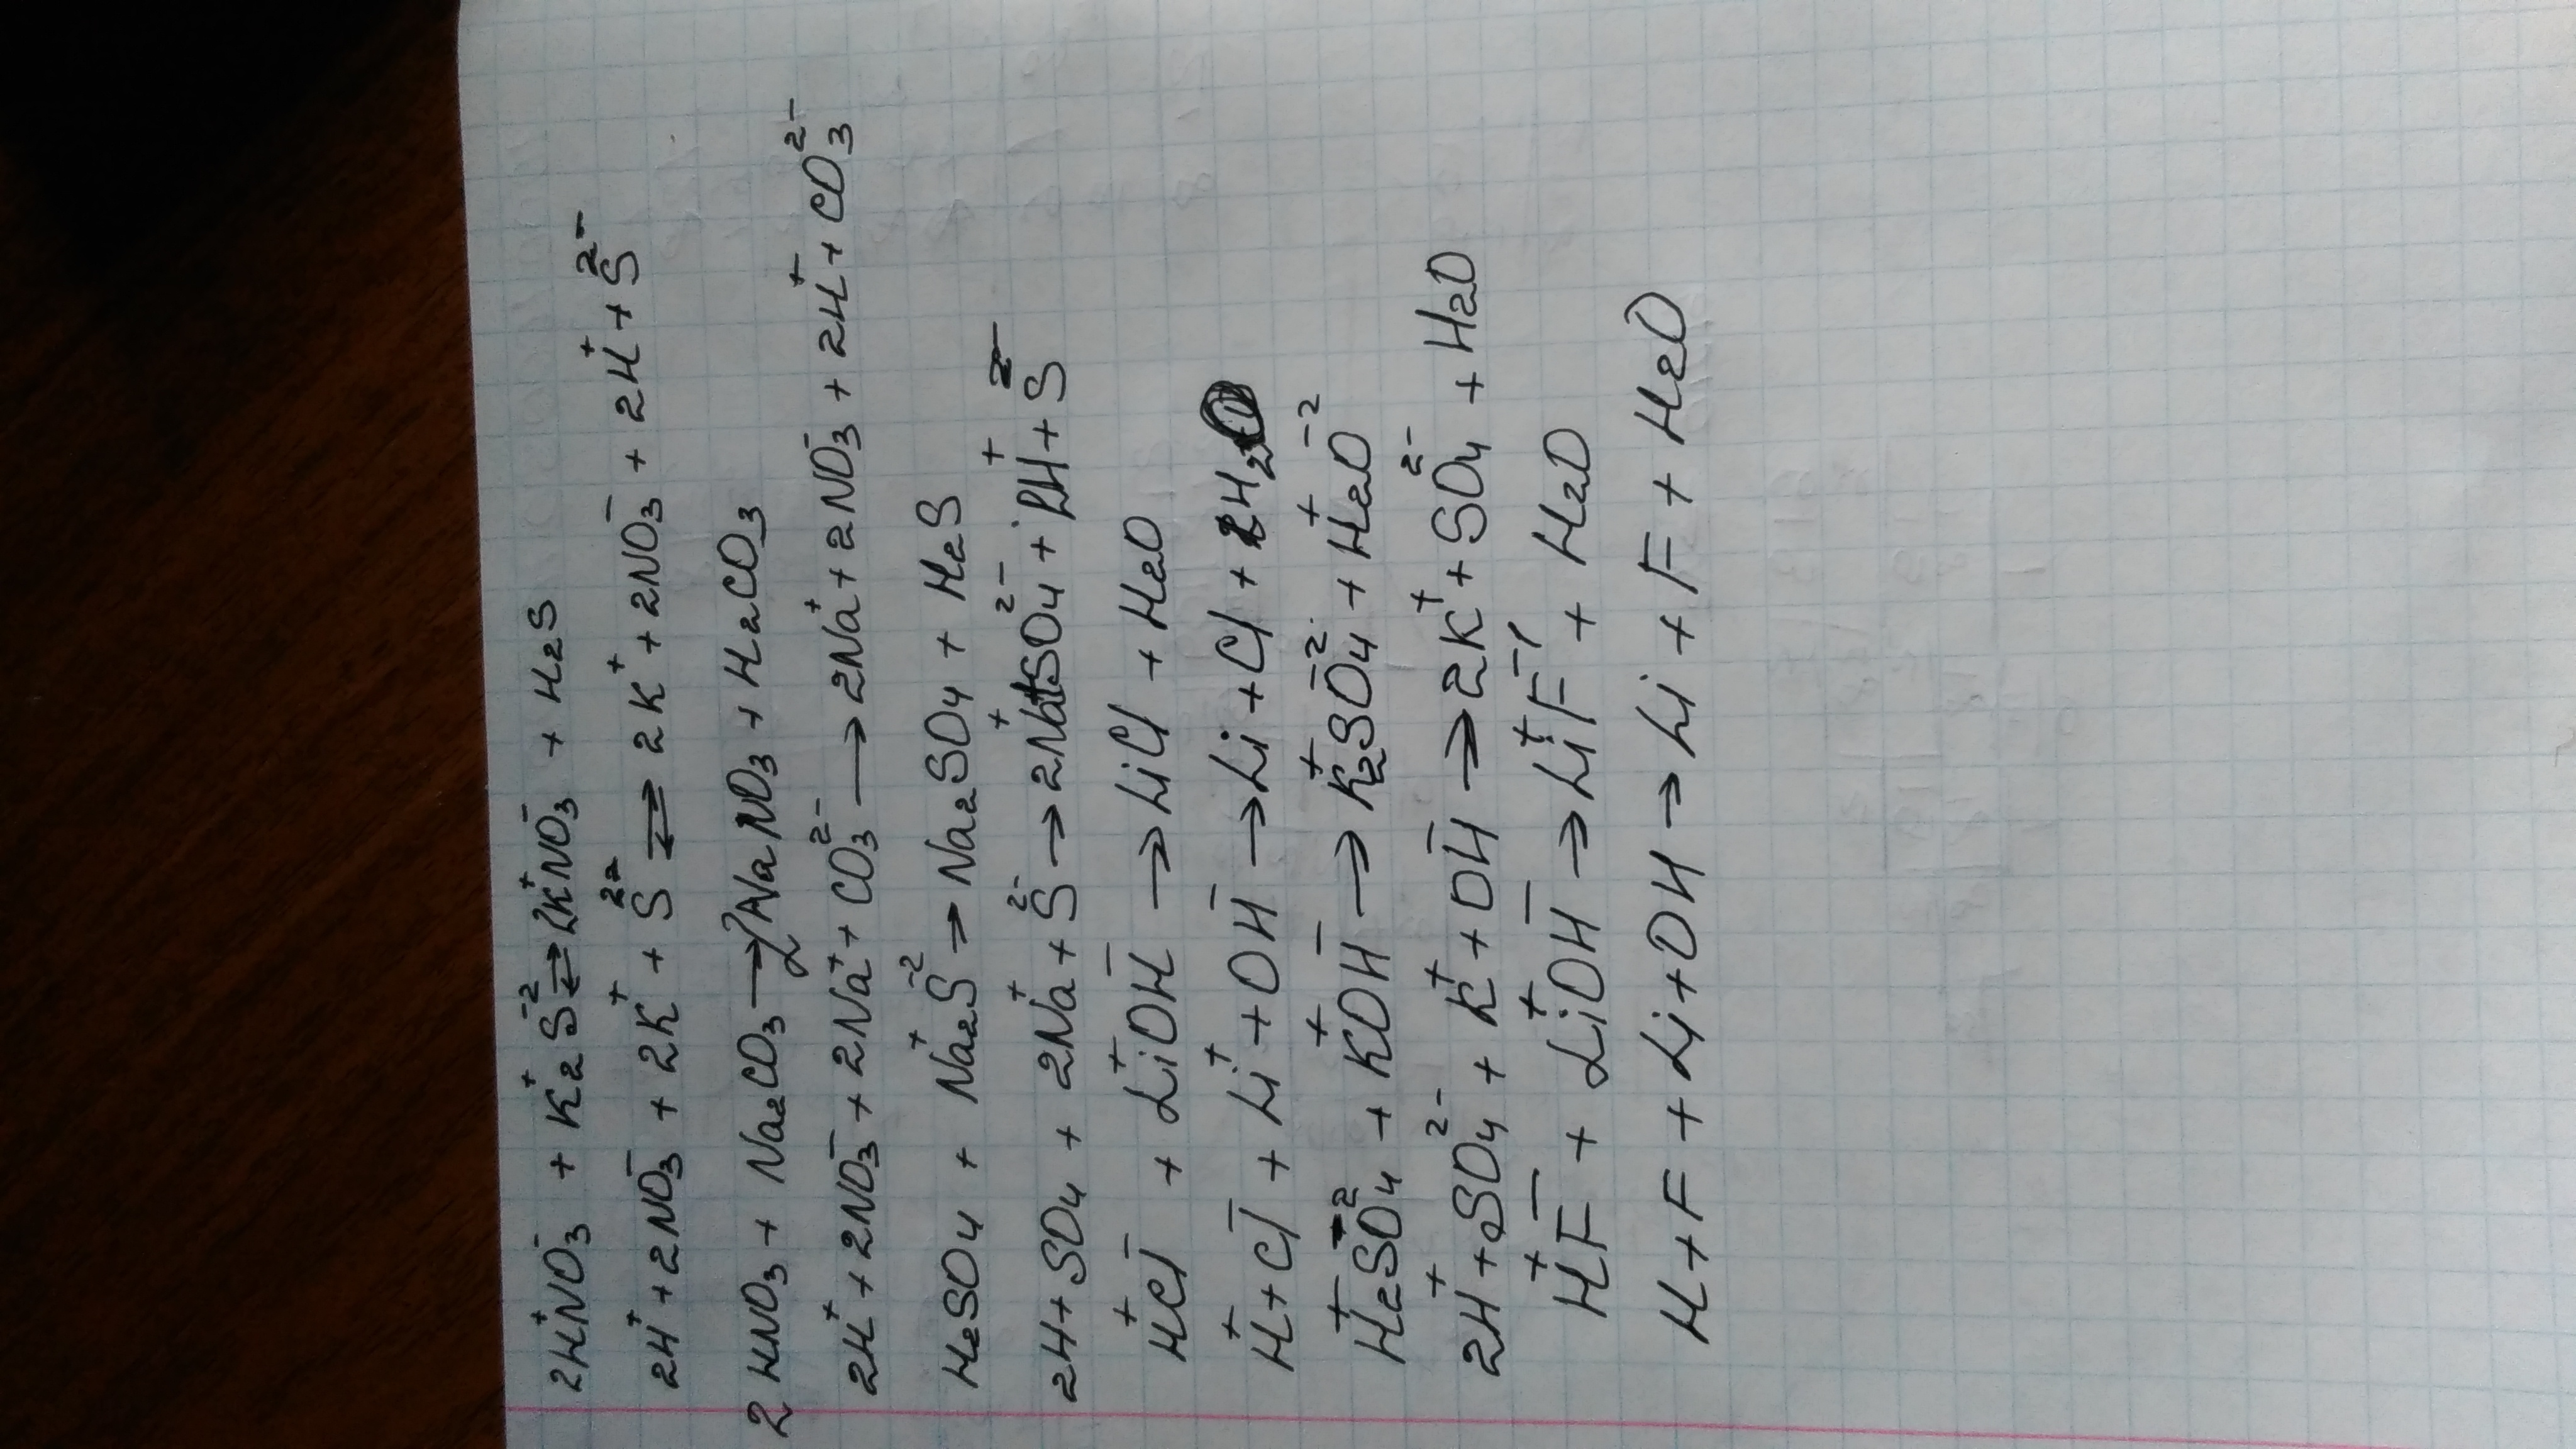 2H⁺NO₃⁻ + K₂⁺S⁻² ⇄ 2K⁺NO₃⁻ + H₂S
2H⁺ + 2NO₃⁻ + 2K⁺ + S²⁻ ⇄ 2K⁺ + 2NO₃⁻ + 2H⁺ + S²⁻
2 HNO₃ + Na₂CO₃ → 2NaNO₃ + H₂CO₃
2H⁺ + 2NO₃⁻ + 2Na⁺ + CO₃²⁻ → 2Na⁺ + 2NO₃⁻ + 2H⁺ + CO₃²⁻
H₂SO₄ + Na₂⁺S⁻² → Na₂SO₄ + H₂S
2H + SO₄ + 2Na⁺ + S²⁻ → 2Na⁺ + SO₄²⁻ + 2H⁺ + S²⁻
H⁺Cl⁻ + Li⁺OH⁻ → LiCl + H₂O
H⁺ + Cl⁻ + Li⁺ + OH⁻ → Li + Cl + H₂O
H₂⁺SO₄⁻² + K⁺OH⁻ → K₂⁺SO₄⁻² + H₂⁺O⁻²
2H⁺ + SO₄²⁻ + K⁺ + OH⁻ → 2K⁺ + SO₄²⁻ + H₂O
H⁺F⁻ + Li⁺OH⁻ → Li⁺F⁻¹ + H₂O
H + F + Li + OH → Li + F + H₂O